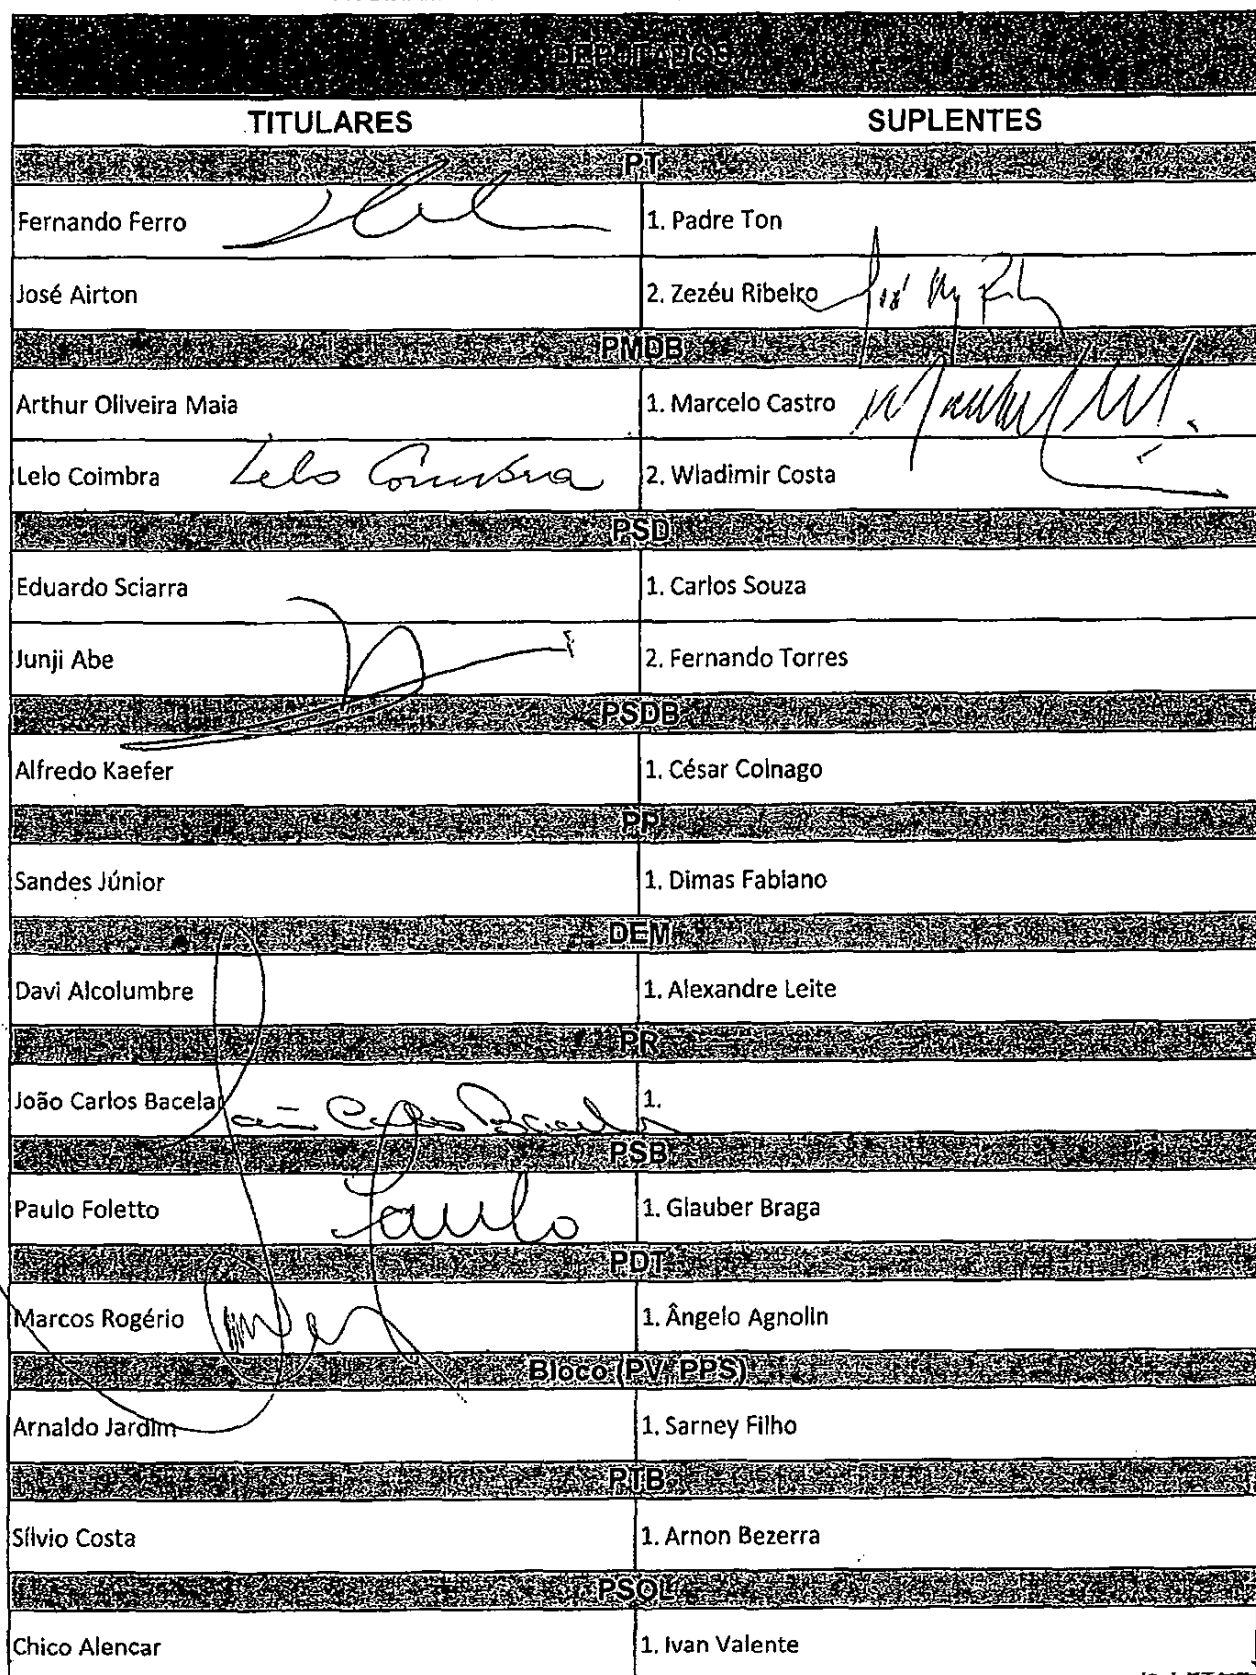 DEPUTADOS
TITULARES SUPLENTES
PT
Fernando Ferro 1. Padre Ton
José Airton 2. Zezéu Ribeiro
PMDB
Arthur Oliveira Maia 1. Marcelo Castro
Lelo Coimbra Lelo Coimbra 2. Wladimir Costa
PSD
Eduardo Sciarra 1. Carlos Souza
Junji Abe 2. Fernando Torres
PSDB
Alfredo Kaefer 1. César Colnago
PP
Sandes Júnior 1. Dimas Fabiano
DEM
Davi Alcolumbre 1. Alexandre Leite
PR
João Carlos Bacelar João Carlos Bacelar 1.
PSB
Paulo Foletto Paulo 1. Glauber Braga
PDT
Marcos Rogério 1. Ângelo Agnolin
Bloco (PV PPS)
Arnaldo Jardim 1. Sarney Filho
PTB
Sílvio Costa 1. Arnon Bezerra
PSOL
Chico Alencar 1. Ivan Valente